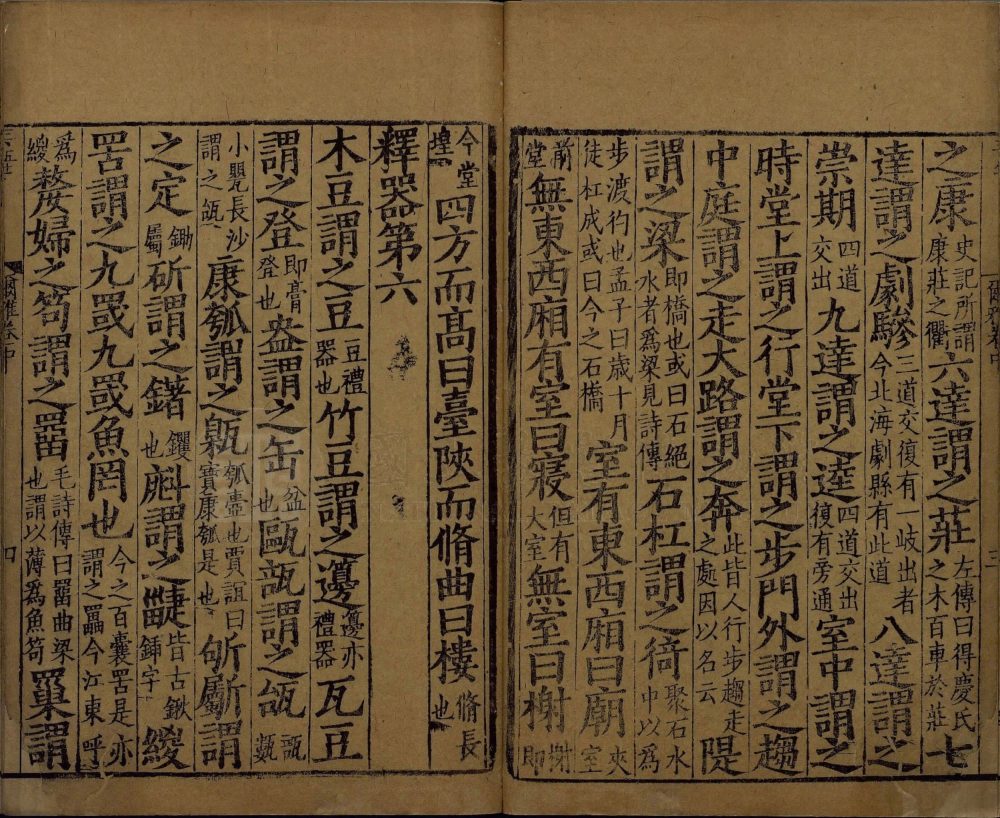 之康史記所謂康莊之衢六達謂之莊左傳曰得慶氏之木百車於莊七
達謂之劇驂三道交復有一岐出者今北海劇縣有此道八達謂之
崇期四道交出九達謂之逵四道交出復有旁通室中謂之
時堂上謂之行堂下謂之步門外謂之趨
中庭謂之走大路謂之奔此皆人行步趨走之處因以名云隄
謂之梁即橋也或曰石絕水者爲梁見詩傳石杠謂之徛聚石水中以爲
步渡彴也孟子曰歲十月徒杠成或曰今之石橋室有東西廂曰廟夾室
前堂無東西廂有室曰寢但有大室無室曰榭榭即
今堂堭四方而高曰臺陜而脩曲曰樓脩長也
釋器第六
木豆謂之豆豆禮器也竹豆謂之籩籩亦禮器瓦豆
謂之登即膏登也盎謂之缶盆也甌瓿謂之瓵瓿甊
小甖長沙謂之瓵康瓠謂之甈瓠壷也賈誼曰寶康瓠是也斪斸謂
之定鋤屬斫謂之鐯钁也㪺謂之疀皆古鍬鍤字緵
罟謂之九罭九罭魚罔也今之百囊罟是亦謂之䍡今江東呼
爲緵嫠婦之笱謂之罶毛詩傳曰罶曲梁也謂以薄爲魚笱罺謂
爾雅卷中
四